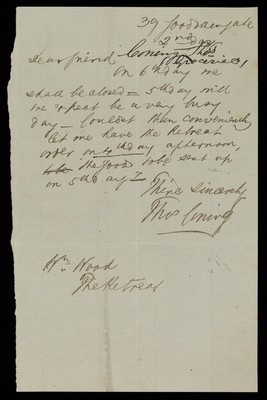 39 Goodramgate
2nd day
Dear friend
On 6th day we
shall be closed = 5th day will
we expect be a very busy
day – Couldst thou conveniently
let me have the Retreat
order on 4th day afternoon,
the food to be sent up
on 5th day?
Thine Sincerely
Thos
Wm. Wood
The Retreat